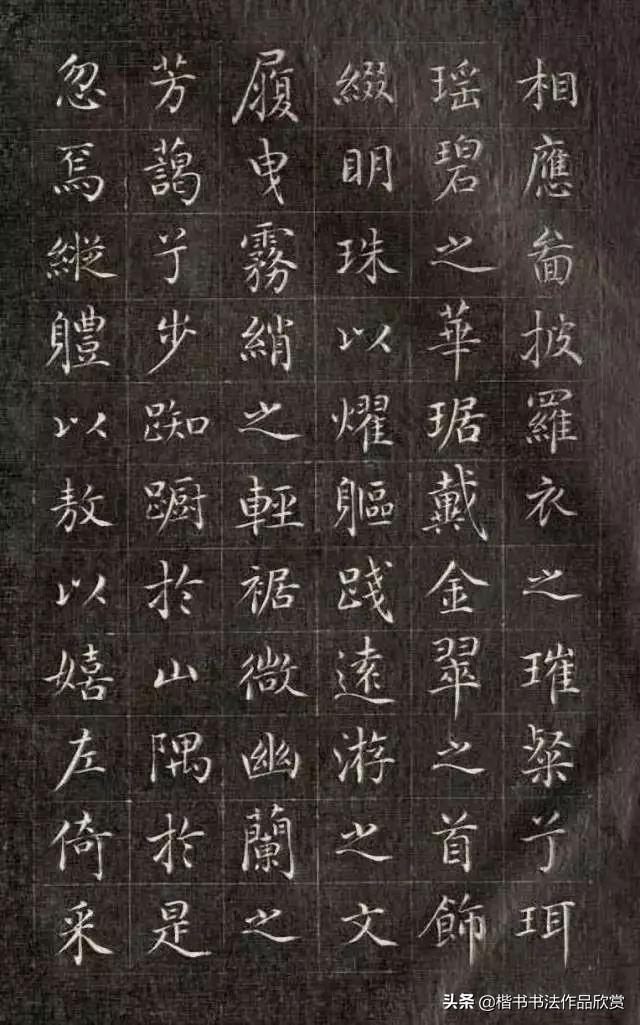 相應啚披羅衣之璀粲兮珥
瑶碧之華琚戴金翠之首飾
綴明珠以燿軀踐遠游之文
履曳霧綃之輕裾微幽蘭之
芳藹兮步踟蹰於山隅於是
忽焉縱軆以敖以嬉左倚采
头条 @楷书书法作品欣赏